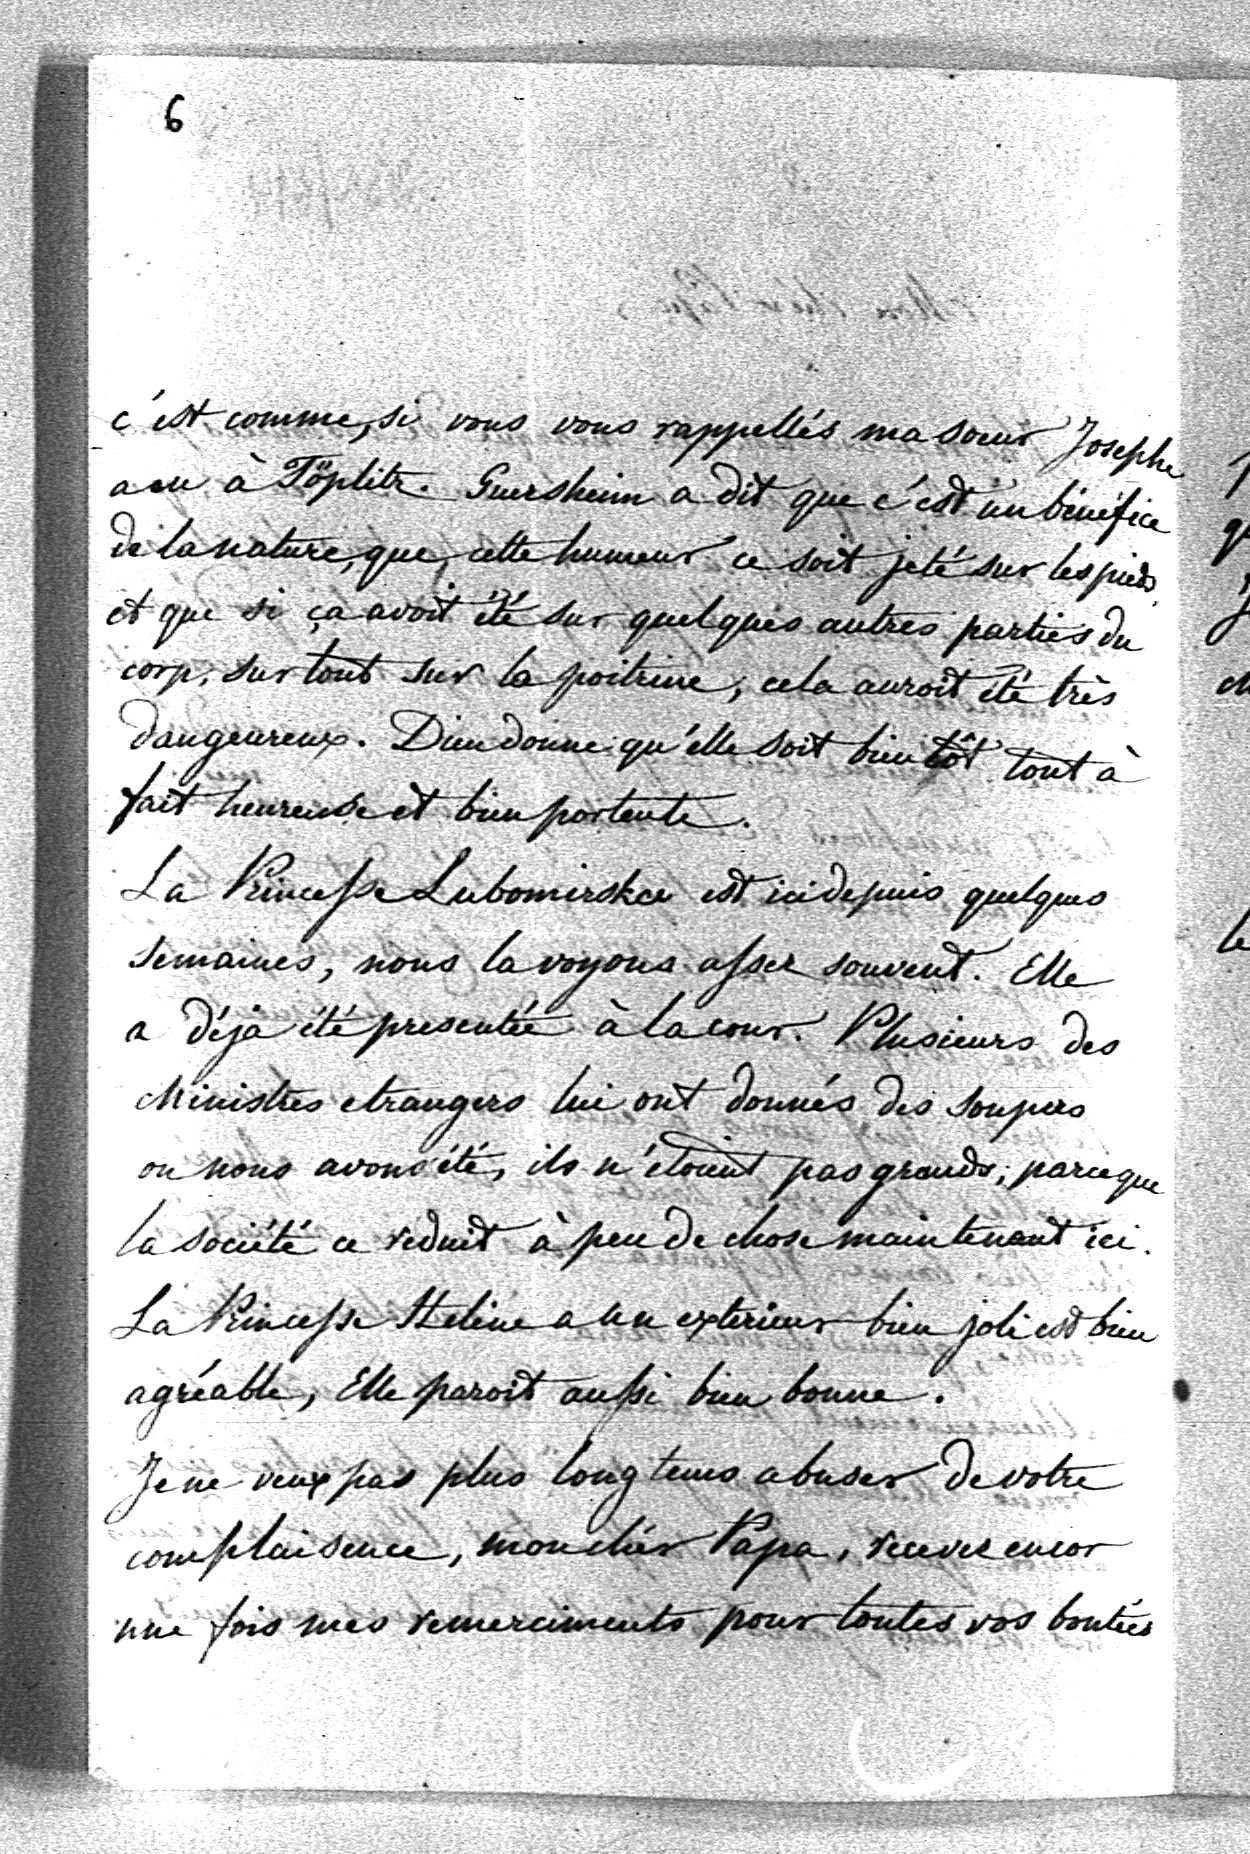 6
c'est comme, si vous vous rappellés ma soeur Josephe
a eu à Töplitz. Guersheim a dit que c'est un bénéfice
de la nature, que, cette humeur ce soit jeté sur les pieds,
et que si ça avoit été sur quelques autres parties du
corp, sur tout sur la poitrine, cela auroit été très
dangeureux. Dieu donne qu'elle soit bientôt tout à
fait heureuse et bien portente.
La Princesse Lubomirska est ici depuis quelques
semaines, nous la voyons assez souvent. Elle
a déja été presentée à la cour. Plusieurs des
Ministres etrangers lui ont donnés des soupers
ou nous avons été, ils n'étoient pas grands, parceque
la société ce reduit à peu de chose maintenant ici.
La Princesse Helene a un exterieur bien joli est bien
agréable, Elle paroit aussi bien bonne.
Je ne veux pas plus longtems abuser de votre
complaisence, mon chér Papa, recevez encor
une fois mes remerciments pour toutes vos bontées